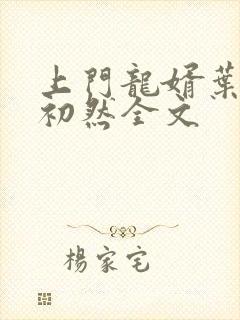 上門龍婿葉
初然全文
楊家宅